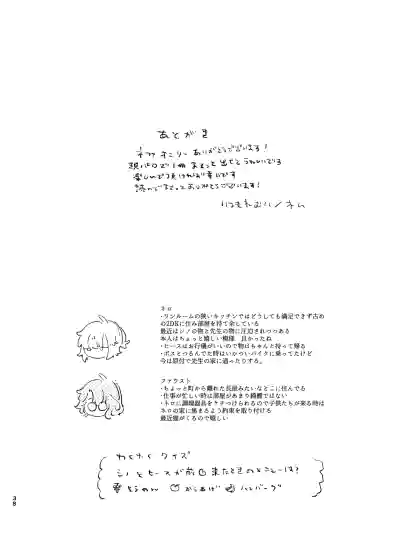 あとがき
ネファ オンリー ありがとうございます!
現パロで1冊 まるっと出せてうれしいです
楽しんで頂ければ幸いです
読んで下さってありがとうございます!
ネム
ネロ
・ワンルームの狭いキッチンではどうしても満足できず古め
の2DKに住み部屋を持て余している
最近はシノの物と先生の物に圧迫されつつある
本人はちょっと嬉しい模様 良かったね
・ヒースはお行儀がいいので物はちゃんと持って帰る
・ボスとつるんでた時はいかついバイクに乗ってたけど
今は原付で先生の家に通ったりする。
ファウスト
・ちょっと町から離れた長屋みたいなとこに住んでる
・仕事が忙しい時は部屋があまり綺麗ではない
・ネロに調理器具をケチつけられるので子供たちが来る時は
ネロの家に集まるよう約束を取り付ける
最近猫がくるので嬉しい
わくわく クイズ
シノとヒースが前回来たときのメニューは?
からあげ ハンバーグ
38